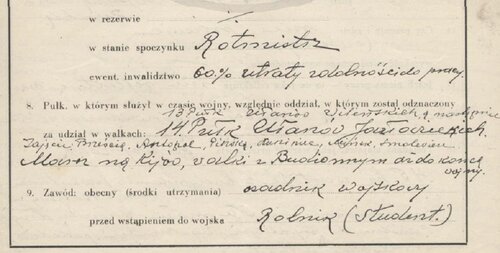 w rezerwie ./.
w stanie spoczynku Rotmistrz
ewent. inwalidztwo 60% utraty zdolności do pracy.
8. Pułk, w którym służył w czasie wojny, względnie oddział, w którym został odznaczony
13 Pułk Ułanów Wileńskich a następnie
za udział w walkach: 14 Pułk Ułanów Jazłowieckich.
Zajęcie Brześcia, Antopol, Pińska, Łuniniec, Mińsk, Smolewicz
Marsz na Kijów, walki z Budionnym aż do końca
wojny.
9. Zawód: obecny (środki utrzymania) osadnik wojskowy
przed wstąpieniem do wojska Rolnik (Student.)